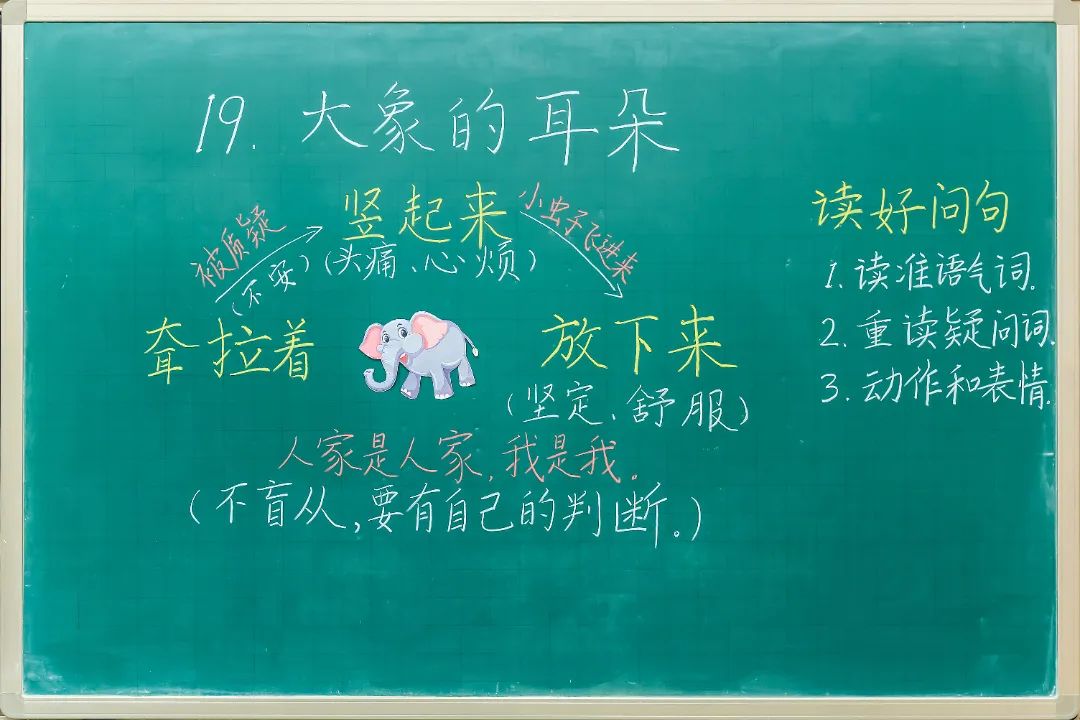 19. 大象的耳朵
竖起来
(头痛、心烦)
被质疑
(不安)
小虫子飞进来
耷拉着
放下来
(坚定、舒服)
人家是人家,我是我。
(不盲从,要有自己的判断。)
读好问句
1. 读准语气词.
2. 重读疑问词.
3. 动作和表情.